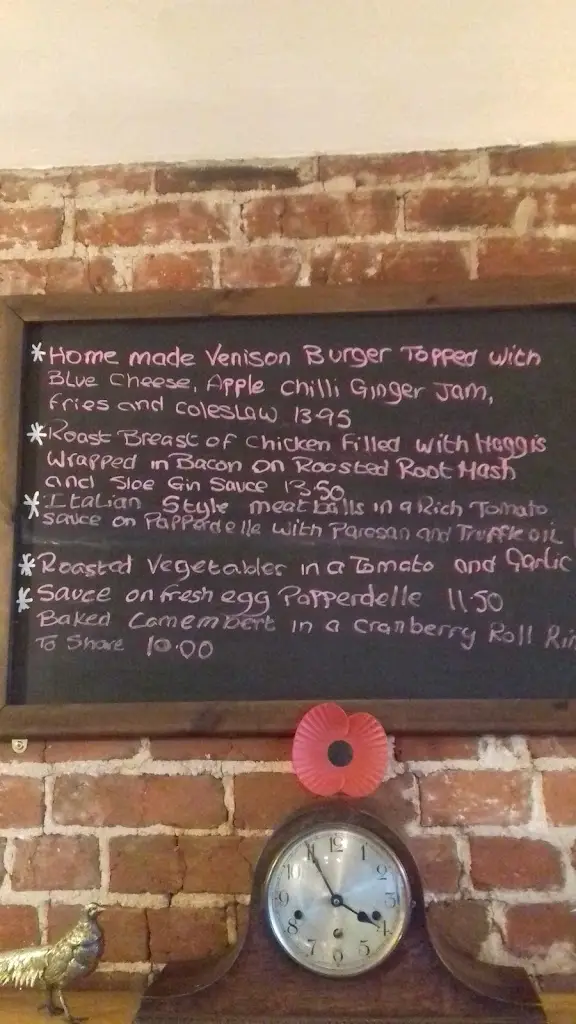 *Home made Venison Burger Topped with
Blue Cheese, Apple Chilli Ginger Jam,
Fries and Coleslaw 13.95
*Roast Breast of Chicken Filled with Haggis
Wrapped in Bacon on Roosted Root Mash
and Sloe Gin Sauce 13.50
*Italian Style meatballs in a Rich Tomato
sauce on Papperdelle with Paresan and Truffle oil
*Roasted Vegetables in a Tomato and Garlic
*Sauce on fresh egg Papperdelle 11.50
Baked Camembert in a Cranberry Roll
To Share 10.00
12
1
2
4
6
7
9
10